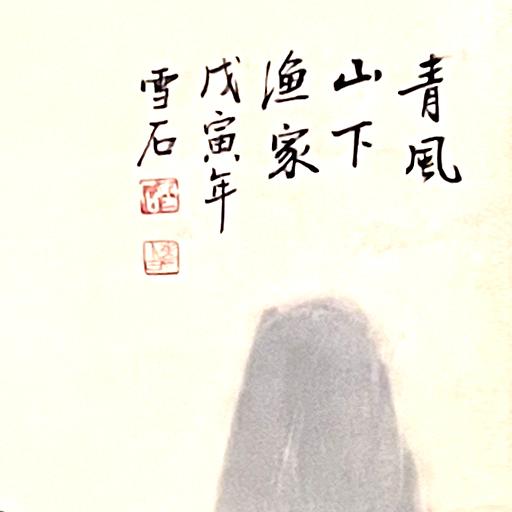 青風
山下
渔家
戊寅年
雪石